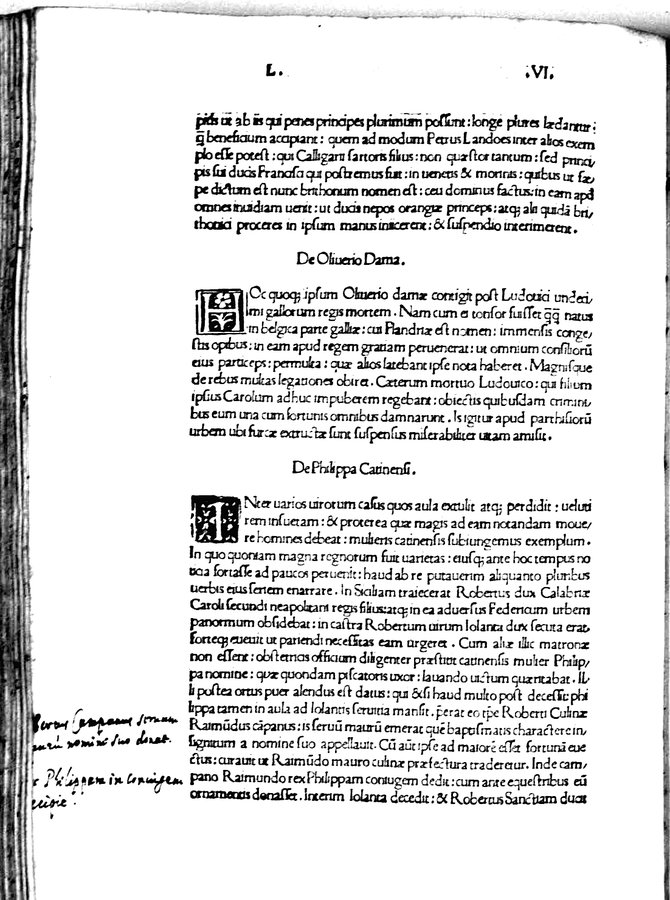 L. .VI.
pieis ut̄ ab iis qui penes principes plurimum̄ possunt : longe plures lædantur :
q̄ beneficium accipiant : quem ad modum Petrus Landoes inter alios exem
plo esse potest : qui Calligarii sartoris filius : non quæstor tantum : sed princi,
pis sui ducis Francisci qui postremus fuit : in uenetis & morinis : quibus ut sæ,
pe dictum est nunc brithonum nomen est : ceu dominus factus : in eam apd
omnes inuidiam uenit : ut ducis nepos orangiæ princeps : atq; alii quidā bri,
thonici proceres in ipsum manus iniicerent : & suspendio interimerent .
De Oliuerio Dama .
HOc quoq; ipsum Oliuerio damæ contigit post Ludouici undeci,
mi gallorum regis mortem . Nam cum ei tonsor fuisset q̄q̄ natus
in belgica parte galliæ : cui Flandriæ est nomen : immensis conge,
stis opibus : in eam apud regem gratiam peruenerat : ut omnium consiliorū
eius particeps : permulta : quæ alios latebant ipse nota haberet . Magnisque
de rebus multas legationes obiret . Cæterum mortuo Ludouico : qui filium
ipsius Carolum adhuc impuberem regebant : obiectis quibusdam crimini,
bus eum una cum fortunis omnibus damnarunt . Is igitur apud parrhisiorū
urbem ubi furcæ extructæ sunt suspensus miserabiliter uitam amisit .
De Philippa Catinensi .
INter uarios uirorum casus quos aula extulit atq; perdidit : ueluti
rem insuetam : & proterea quæ magis ad eam notandam moue,
re homines debeat : mulieris catinensis subiungemus exemplum .
In quo quoniam magna regnorum fuit uarietas : eiusq; ante hoc tempus no
titia fortasse ad paucos peruenit : haud ab re putauerim aliquanto pluribus
uerbis eius seriem enarrare . In Siciliam traiecerat Robertus dux Calabriæ
Caroli secundi neapolitani regis filius : atq; in ea aduersus Federicum urbem
panormum obsidebat : in castra Robertum uirum Iolanta dux secuta erat .
forteq; euenit ut pariendi necessitas eam urgeret . Cum aliæ illic matronæ
non essent : obstetricis officium diligenter præstitit catinensis mulier Philip,
pa nomine : quæ quondam piscatoris uxor : lauando uictum quæritabat . Il,
li postea ortus puer alendus est datus : qui & si haud multo post decessit : phi
lippa tamen in aula ad Iolantis seruitia mansit . p̄erat eo tp̄e Roberti Culinæ
Raimūdus cāpanus : is seruū maurū emerat quē baptismatis charactere in,
signitum a nomine suo appellauit . Cū aūt ipse ad maiorē esset fortunā eue
ctus : curauit ut Raimūdo mauro culinæ præfectura traderetur . Inde cam,
pano Raimundo rex Philippam coniugem dedit : cum ante equestribus eū
ornamentis donasset . Interim Iolanta decedit : & Robertus Sanctiam ducis
Campanus
nomine suo donat.
Philippam in coniugem